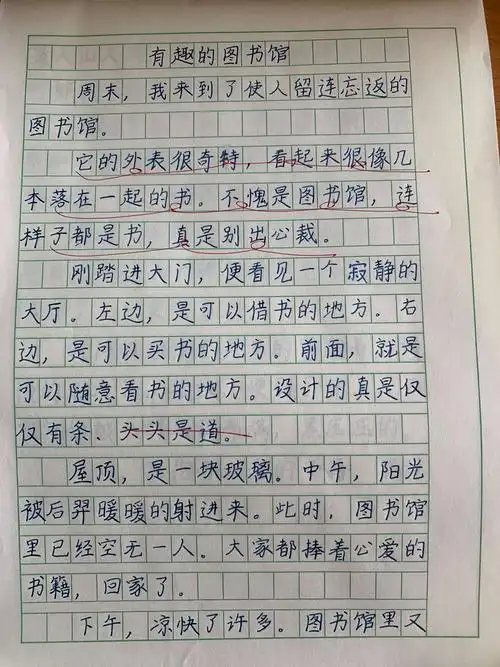 有趣的图书馆
周末，我来到了使人留连忘返的
图书馆。
它的外表很奇特，看起来很像几
本落在一起的书。不愧是图书馆，连
样子都是书，真是别出心裁。
刚踏进大门，便看见一个寂静的
大厅。左边，是可以借书的地方。右
边，是可以买书的地方。前面，就是
可以随意看书的地方。设计的真是仅
仅有条、头头是道。
屋顶，是一块玻璃。中午，阳光
被后羿暖暖的射进来。此时，图书馆
里已经空无一人。大家都捧着心爱的
书籍，回家了。
下午，凉快了许多。图书馆里又